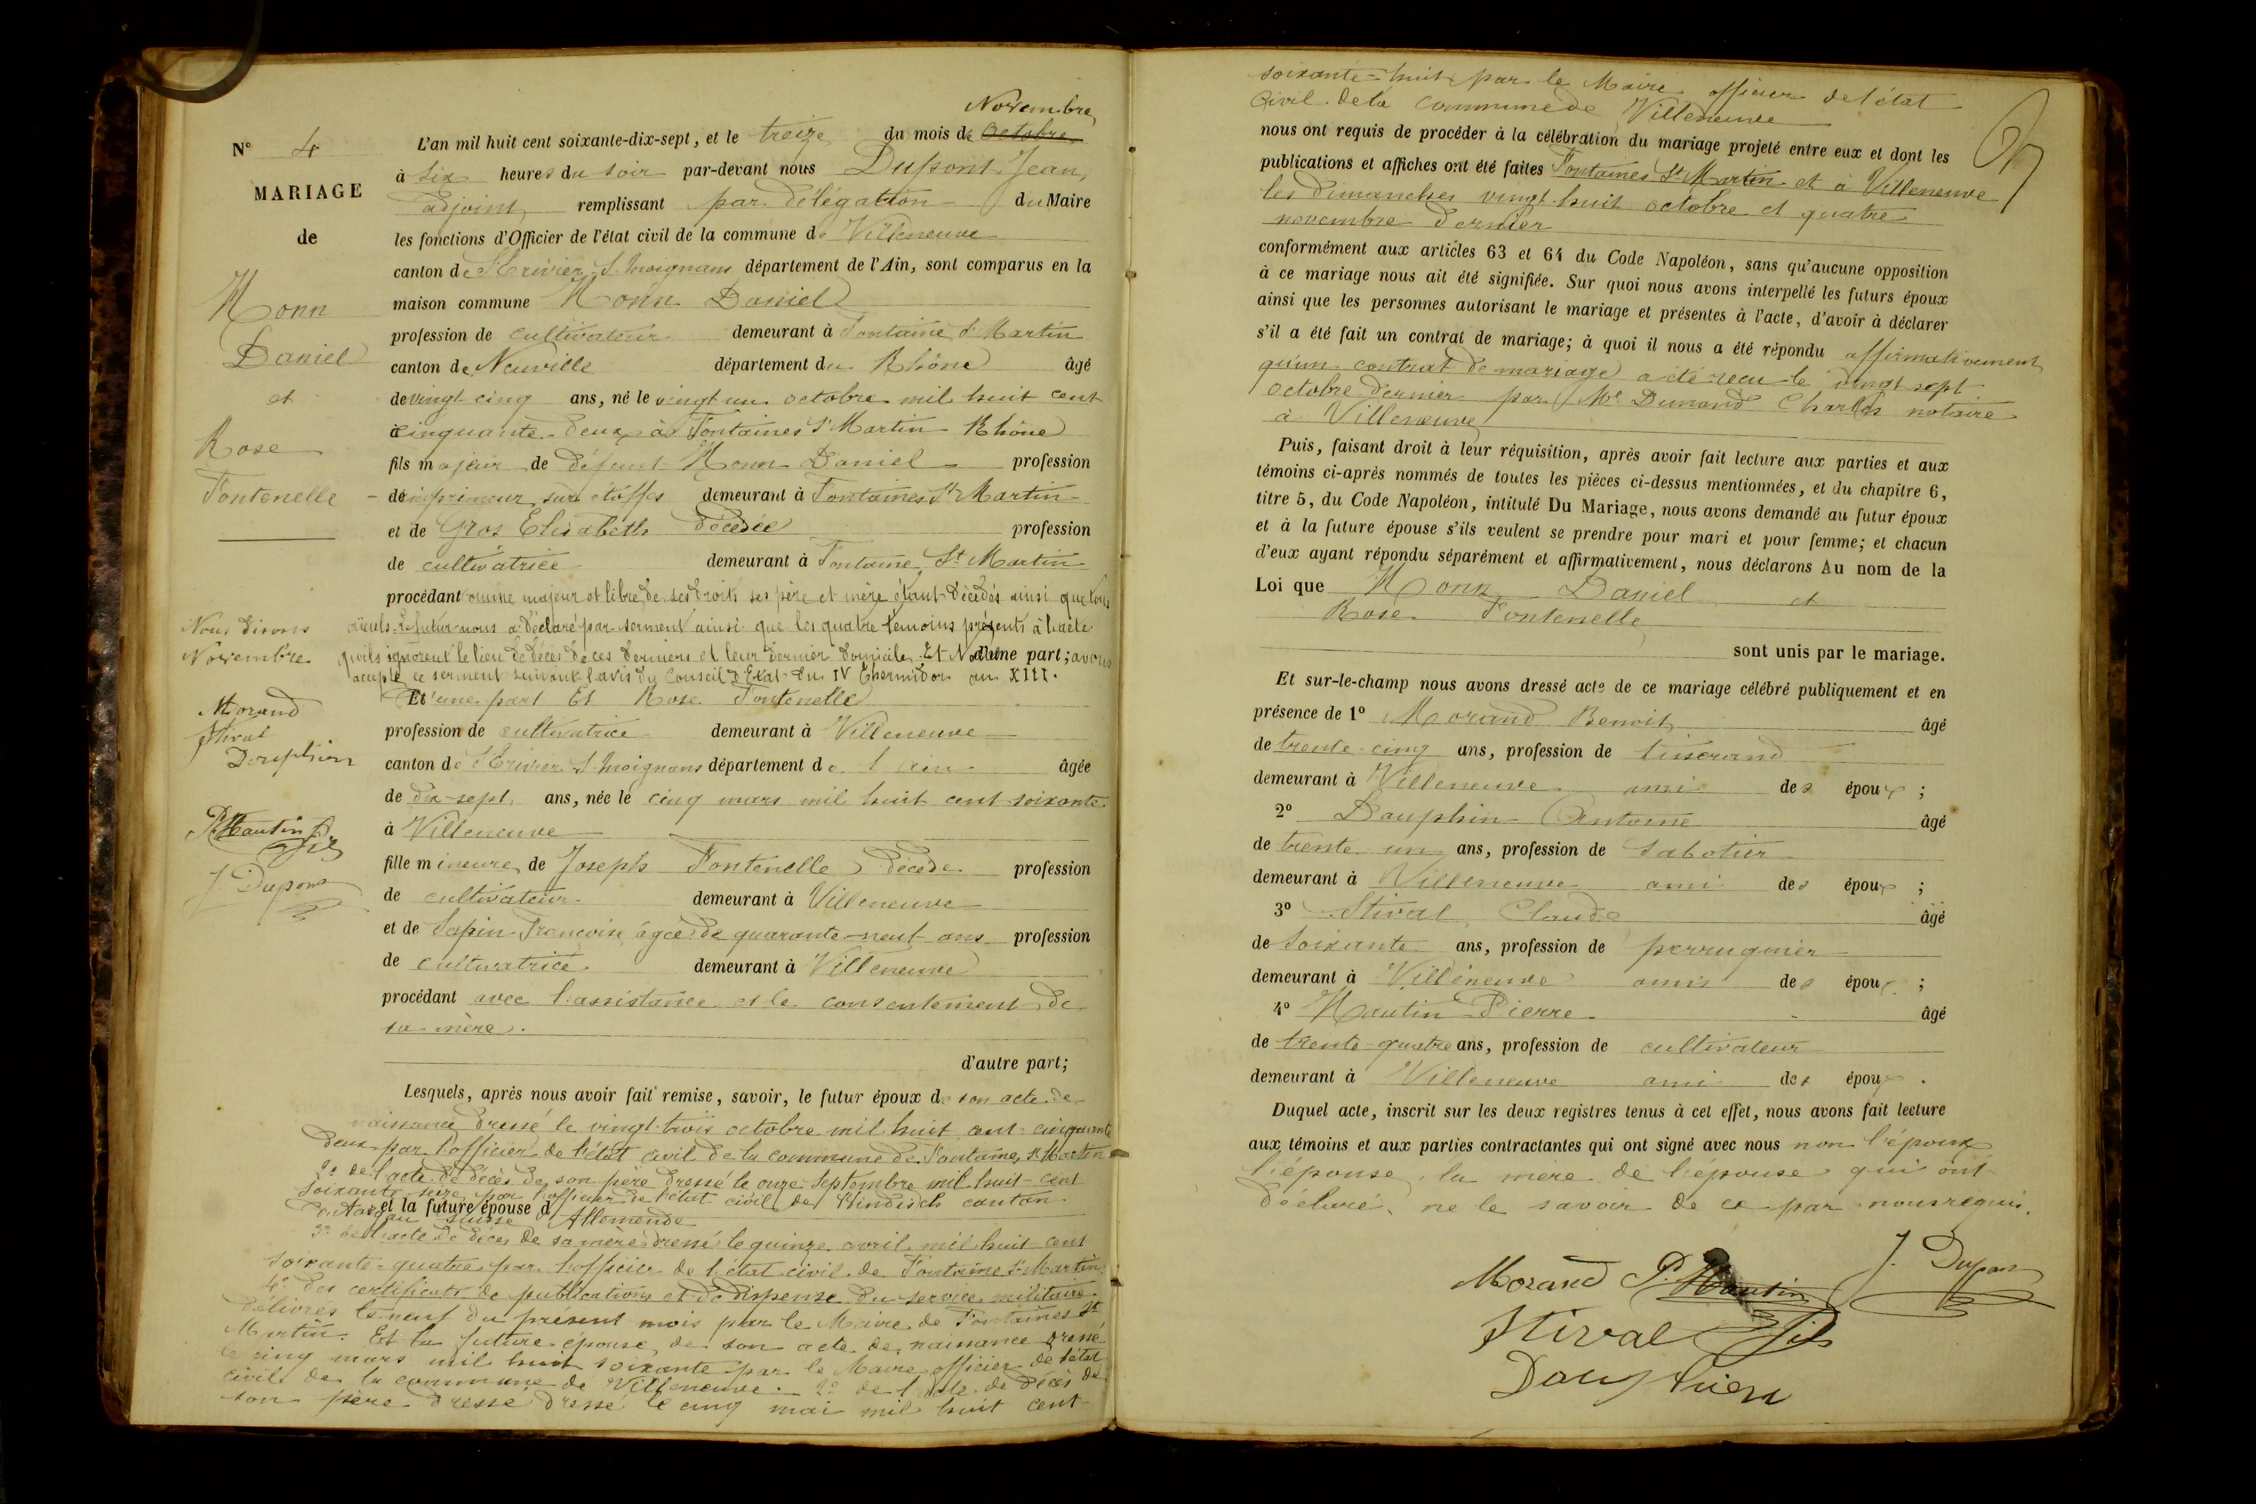 Novembre
N° 4 L'an mil huit cent soixante-dix-sept, et le treize du mois de Octobre
MARIAGE
de
Honn
Daniel
et
Rose
Fontenelle
à six heures du soir par-devant nous Dupont Jean,
adjoint remplissant par délégation du Maire
les fonctions d'Officier de l'état civil de la commune de Villeneuve
canton de St Trivier S. Moignans département de l'Ain, sont comparus en la
maison commune Honn Daniel
profession de cultivateur demeurant à Fontaine St Martin
canton de Neuville département du Rhône âgé
de vingt cinq ans, né le vingt un octobre mil huit cent
cinquante deux à Fontaines St Martin Rhône
fils majeur de défunt Honn Daniel profession
de imprimeur sur étoffes demeurant à Fontaines St Martin
et de Gros Elisabeth décédée profession
de cultivatrice demeurant à Fontaine St Martin
procédant comme majeur et libre de ses droits ses père et mère étant décédés ainsi que tous
aïeuls. Le futur nous a déclaré par serment ainsi que les quatre témoins présents à l'acte
qu'ils ignorent le lieu de décès de ces derniers et leur dernier domicile. Et Nous d'une part; avons
accepté ce serment suivant l'avis du Conseil d'Etat du IV Thermidor an XIII.
D'une part Et Rose Fontenelle
Nous disons
Novembre
Morand
Stival
Douphien
P. Hautin
fils
J. Dupont
profession de cultivatrice demeurant à Villeneuve
canton de St Trivier S. Moignans département de l'ain âgée
de dix-sept ans, née le cinq mars mil huit cent soixante
à Villeneuve
fille mineure de Joseph Fontenelle décédé profession
de cultivateur demeurant à Villeneuve
et de Sapin Françoise âgée de quarante-neuf ans profession
de cultivatrice demeurant à Villeneuve
procédant avec l'assistance et le consentement de
sa mère.
d'autre part;
Lesquels, après nous avoir fait remise, savoir, le futur époux de son acte de
naissance dressé le vingt-trois octobre mil huit cent cinquante
deux par l'officier de l'état civil de la commune de Fontaines St Martin
2° de l'acte de décès de son père dressé le onze Septembre mil huit cent
soixante seize par l'officier de l'état civil de Windisch canton
et la future épouse d
d'Aargau Suisse Allemende
3° de l'acte de décès de sa mère dressé le quinze avril mil huit cent
soixante-quatre par l'officier de l'état civil de Fontaine St Martin
4° des certificats de publications et de dispense du service militaire
délivrés le neuf du présent mois par le Maire de Fontaines St
Martin. Et la future épouse de son acte de naissance dressé
le cinq mars mil huit soixante par le Maire officier de l'état
civil de la commune de Villeneuve. 2° de l'acte de décès de
son père dressé dressé le cinq mai mil huit cent
soixante-huit par le Maire officier de l'état
Civil de la commune de Villeneuve
nous ont requis de procéder à la célébration du mariage projeté entre eux et dont les
publications et affiches ont été faites Fontaines St Martin et à Villeneuve
les dimanches vingt-huit octobre et quatre
novembre dernier
conformément aux articles 63 et 64 du Code Napoléon, sans qu'aucune opposition
à ce mariage nous ait été signifiée. Sur quoi nous avons interpellé les futurs époux
ainsi que les personnes autorisant le mariage et présentes à l'acte, d'avoir à déclarer
s'il a été fait un contrat de mariage; à quoi il nous a été répondu affirmativement
qu'un contrat de mariage a été reçu le vingt sept
octobre dernier par Me Dunand Charles notaire
à Villeneuve
Puis, faisant droit à leur réquisition, après avoir fait lecture aux parties et aux
témoins ci-après nommés de toutes les pièces ci-dessus mentionnées, et du chapitre 6,
titre 5, du Code Napoléon, intitulé Du Mariage, nous avons demandé au futur époux
et à la future épouse s'ils veulent se prendre pour mari et pour femme; et chacun
d'eux ayant répondu séparément et affirmativement, nous déclarons Au nom de la
Loi que Honn Daniel et
Rose Fontenelle
sont unis par le mariage.
Et sur-le-champ nous avons dressé acte de ce mariage célébré publiquement et en
présence de 1° Morand Benoit âgé
de trente-cinq ans, profession de tisserand
demeurant à Villeneuve ami des époux ;
2° Dauphin Antoine âgé
de trente un ans, profession de sabotier
demeurant à Villeneuve ami des époux ;
3° Stival Claude âgé
de soixante ans, profession de perruquier
demeurant à Villeneuve amis des époux ;
4° Hautin Pierre âgé
de trente-quatre ans, profession de cultivateur
demeurant à Villeneuve ami des époux .
Duquel acte, inscrit sur les deux registres tenus à cet effet, nous avons fait lecture
aux témoins et aux parties contractantes qui ont signé avec nous non l'époux
l'épouse, la mère de l'épouse qui ont
déclaré ne le savoir de ce par nous requis.
J. Dupont
Morand P. Hautin
Stival fils
Douphien